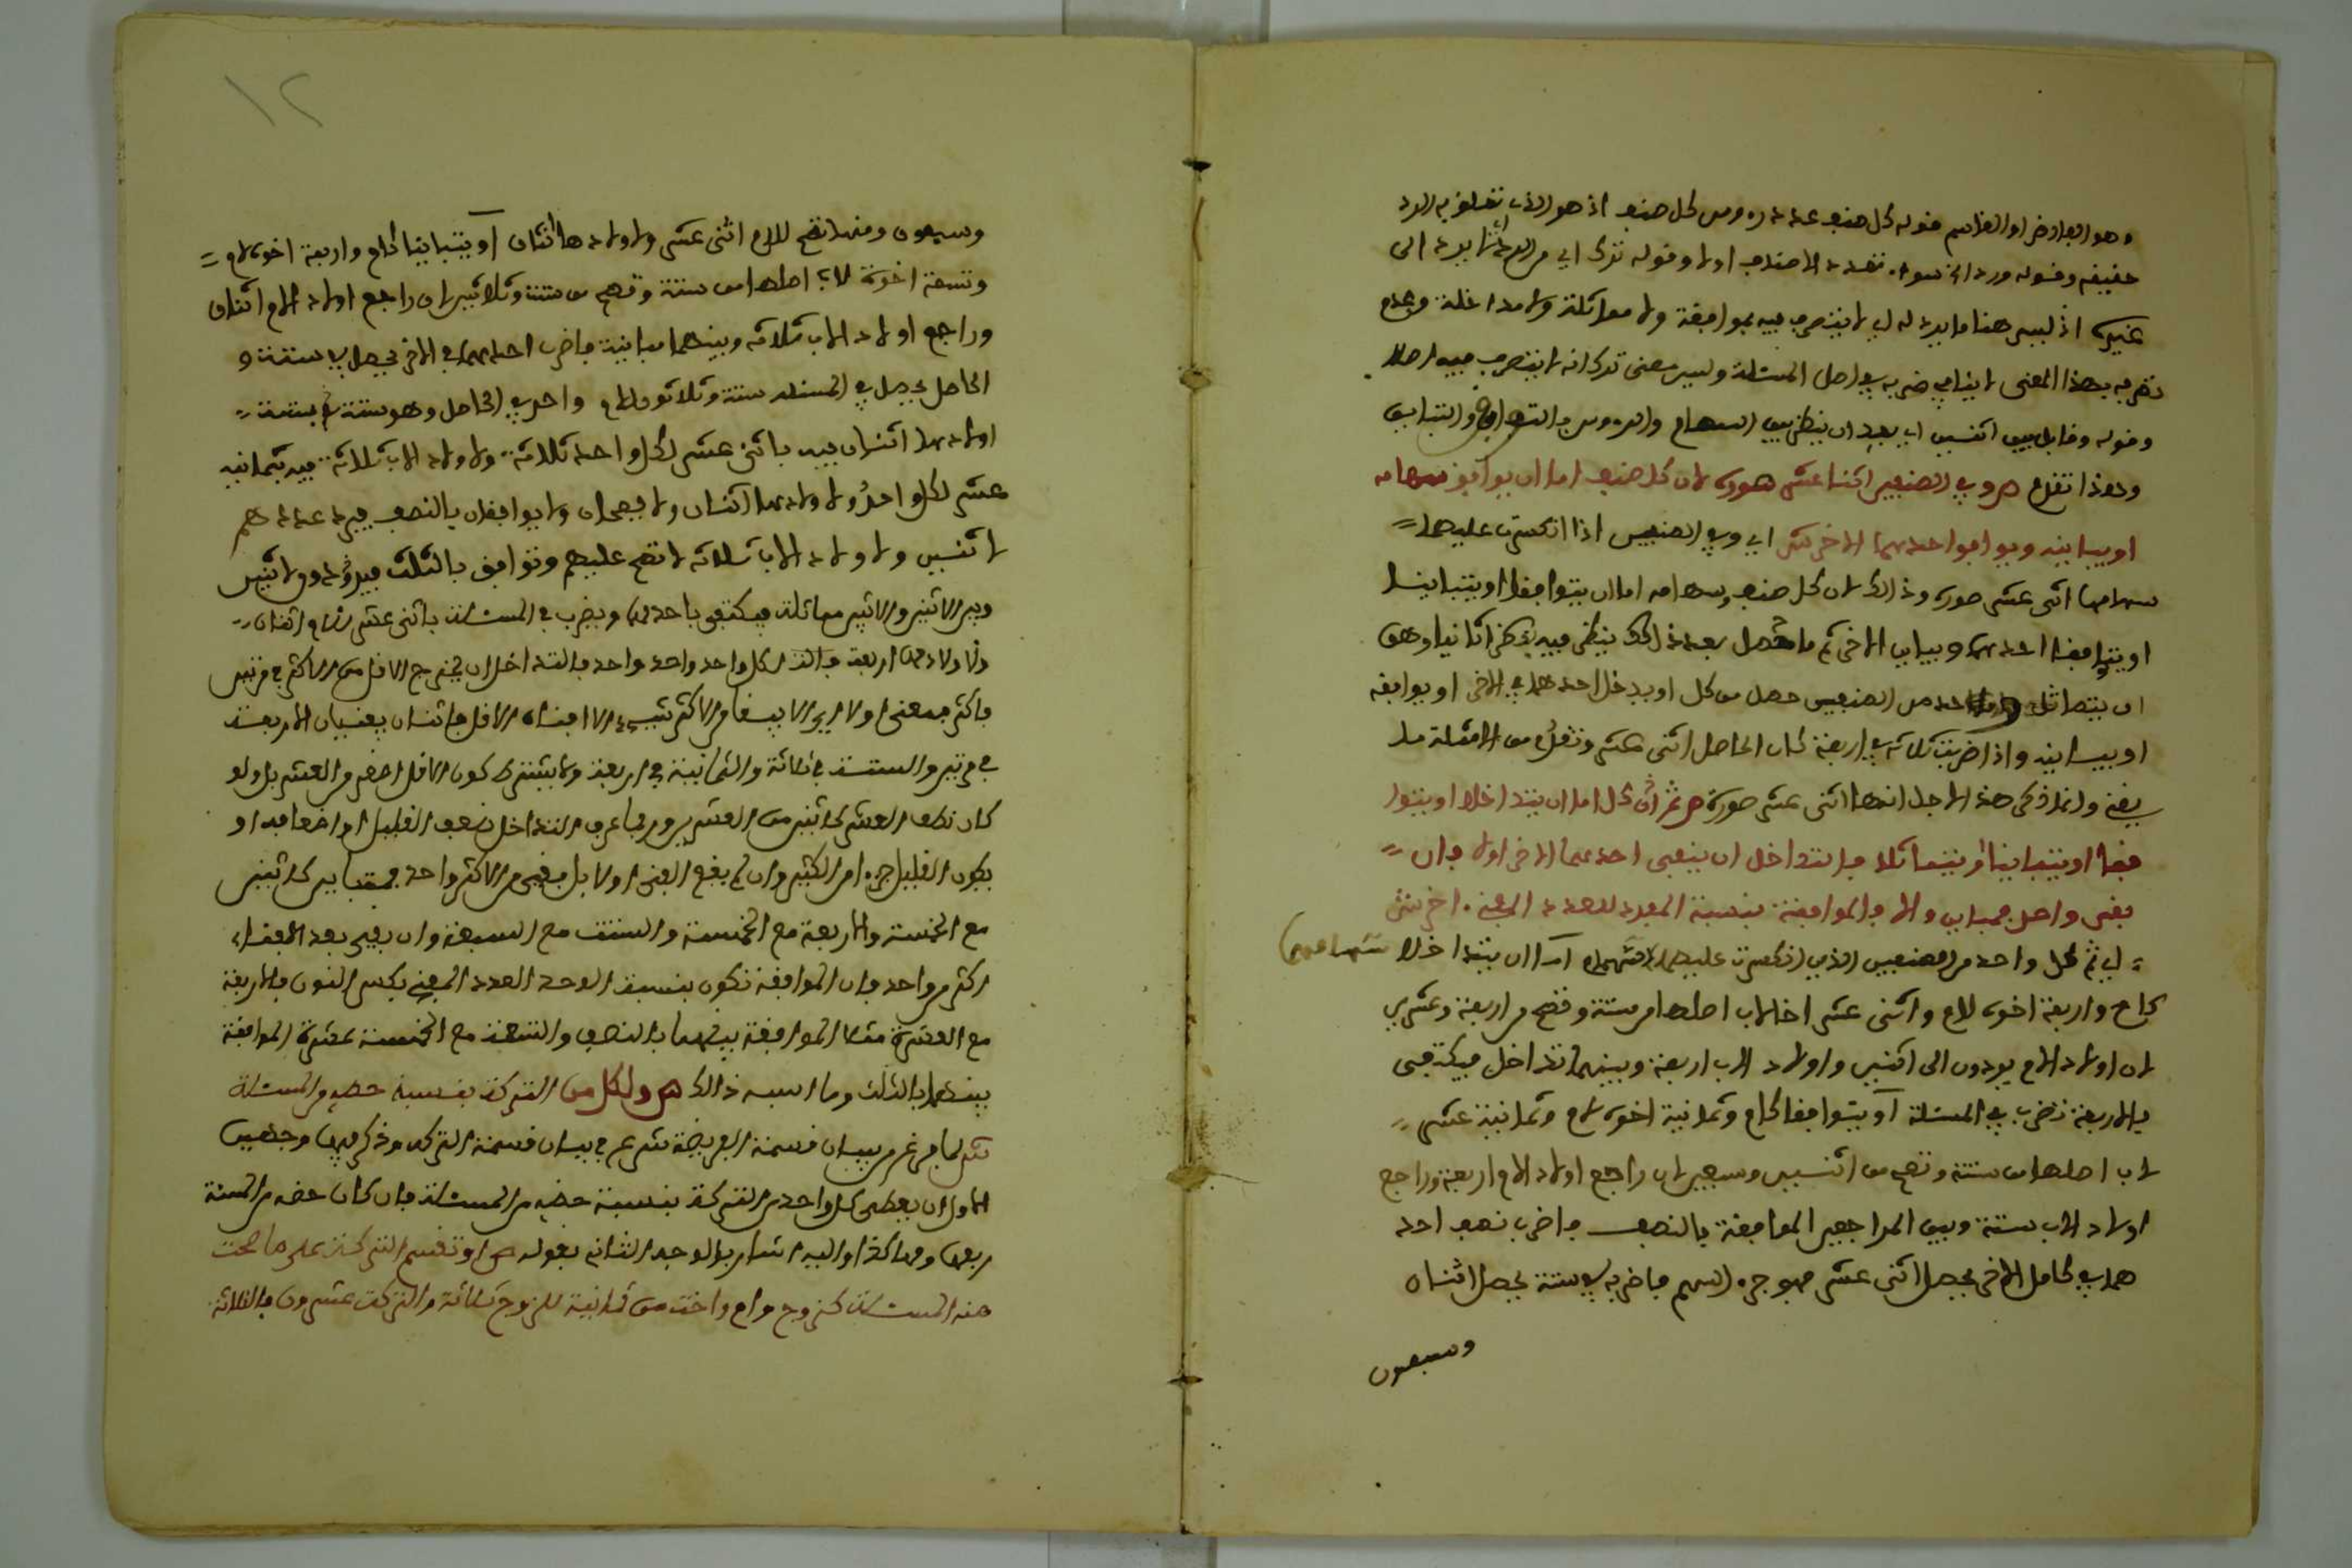 وهو الفارض او القاسم فوله كل صنف عدد رءوس كل صنف اذ هو الذي تعلق به الرد
حقيقة وقوله ورد الى تعدد الاصناف اولا وقوله ترك اي من الرد
غيره اذ ليس هنا ما يرد له اي لا يتصرف فيه بموافقة ولا مماثلة ولا مداخلة وعدم
بهذا المعنى لا ينافي ضربه في اصل المسئلة وليس معنى تركه انه لا يتصرف فيه اصلا
وقوله وقابل بين اثنين اي بعد ان ينظر بين السهام والرءوس بالتوافق والتباين
وهذا تقدم ص وفي الصنفين اثنا عشر صورة لان كل صنف اما ان يوافق سهامه
او يباينه ويوافق احدهما الاخر ش اي وفي الصنفين اذا انكسرت عليهما
سهامها اثنى عشر صورة وذالك لان كل صنف وسهامه اما ان يتوافقا او يتباينا
او يتوافق احدهما ويباين الاخر ثم ما حصل بعد ذالك ينظر فيه نظرا ثانيا وهو
ان يتماثل من الصنفين حصل من كل او يدخل احدهما في الاخر او يوافقه
او يباينه واذا ضربت ثلاثة في اربعة كان الحاصل اثنى عشر من الامثلة ما
اثنى عشر صورة ص ثم ان كل اما ان يتداخلا او يتوا
فقا او يتباينا او يتماثلا فالتداخل ان يفني احدهما الاخر اولا فان
بقي واحد فمتباين والا فالموافقة بنسبة المفرد للعدد المفني اخر ش
اي ثم كل واحد من الصنفين الذين انكسرت عليهما سهامهما اما ان يتداخلا سهامهما
كام واربعة اخوة لام واثنى عشر اخا لاب اصلها من ستة وتصح من اربعة وعشرين
لان اولاد الام يردون الى اثنين واولاد الاب اربعة وبينهما تداخل فيكتفى
بالاربعة تضرب في المسئلة او يتوافقا كام وثمانية اخوة لام وثمانية عشر
لاب اصلها من ستة وتصح من اثنين وسبعين لان راجع اولاد الام اربعة وراجع
اولاد الاب ستة وبين الراجعين الموافقة بالنصف فاضرب نصف احد
هما في كامل الاخر يحصل اثنى عشر فهو جزء السهم فاضربه في ستة يحصل اثناه
وسبعون
١٢
وسبعون ومنها تصح للام اثنى عشر ولاولادها اثنان او يتباينا كام واربعة اخوة لام
وتسعة اخوة لاب اصلها من ستة وتصح من ستة وثلاثين لان راجع اولاد الام اثنان
وراجع اولاد الاب ثلاثة وبينهما مباينة فاضرب احدهما في الاخر يحصل ستة و
الحاصل يحصل في المسئلة ستة وثلاثون للام واحد في الحاصل وهو ستة بستة
اولادها اثنان فيه باثنى عشر لكل واحد ثلاثة ولاولاد الاب ثلاثة فيه بثمانية
عشر لكل واحد ولاولادها اثنان ولا يصحان ويوافقان بالنصف فيرد عددهم
لاثنين ولاولاد الاب ثلاثة لا تصح عليهم وتوافق بالثلث فيردون لاثنين
وبين الاثنين والاثنين مماثلة فيكتفى باحدهما ويضرب في المسئلة باثنى عشر للام اثنان
ولاولادها اربعة لكل واحد واحد فالتداخل ان يخرج الاقل من الاكثر في مرتين
فاكثر فمعنى اولا اي لا يبقى من الاكثر شيء الا افناه الاقل فاثنان يفنيان الاربعة
في مرتين والستة في ثلاثة والثمانية في اربعة ولا يشترط كون الاقل اصغر من العشر بل ولو
كان نصف العشر كاثنين من العشرين وربما عرف التداخل نصف القليل او اضعافه او
بكون القليل جزءا من الكثير وان لم يقع الفنى اولا بل بقي من الاكثر واحد فمتباين كاثنين
مع الخمسة والاربعة مع الخمسة والستة مع السبعة وان بقي بعد الافناء
اكثر من واحد فان الموافقة تكون بنسبة الواحد العدد المفني بكسر النون فالاربعة
مع العشرة مثلا الموافقة بينهما بالنصف والتسعة مع الخمسة عشرة الموافقة
بينهما بالثلث وما اشبه ذالك ص ولكل من التركة بنسبة حظه من المسئلة
ش لما فرغ من بيان قسمة الفريضة شرع في بيان قسمة التركة وذكر فيها وجهين
الاول ان يعطى كل واحد من التركة بنسبة حظه من المسئلة فان كان حظه من المسئلة
ربعها وهاكذا واليه اشار بالوجه الثاني بقوله ص او تقسم التركة على ما صحت
منه المسئلة كزوج وام واخت من ثمانية للزوج ثلاثة والتركة عشرون فالثلاثة